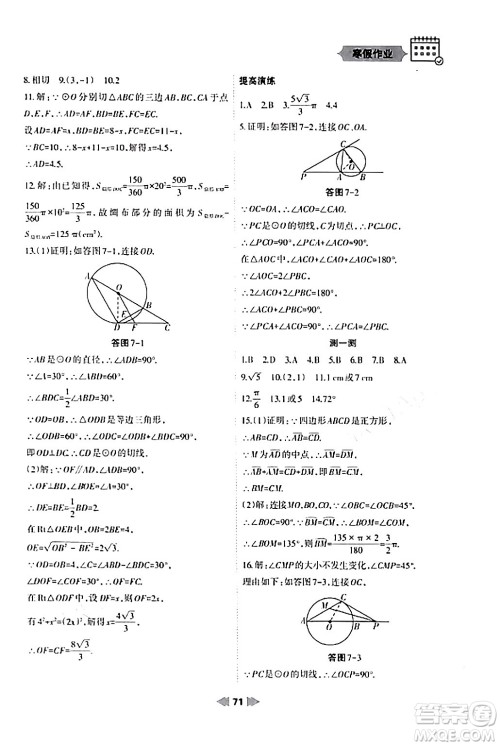 寒假作业
8.相切 9.(3,-1) 10.2
11.解:∵⊙O分别切△ABC的三边AB,BC,CA于点
D,E,F,∴AD=AF,BD=BE,FC=EC.
设AD=AF=x,则BD=BE=9-x,FC=EC=11-x,
∵BC=10,∴9-x+11-x=10,解得x=5,
12.解:由已知得,S=150/360π×20²=500/3π,S=
150/360π×10²=125/3π,故绸布部分的面积为S-
S=125π(cm²).
13.(1)证明:如答图7-1,连接OD.
A
O
E
B
D
F
C
答图7-1
∵AB是⊙O的直径,∴∠ADB=90°.
∵∠A=30°,∴∠ABD=60°.
∴∠BDC=1/2∠ABD=30°.
∵OD=OB,∴△ODB是等边三角形,
∴∠ODB=60°∴∠ODC=∠ODB+∠BDC=90°,
即OD⊥DC.∴CD是⊙O的切线.
(2)解:∵OF//AD,∠ADB=90°,
∴OF⊥BD,∠BOE=∠A=30°.
∴DE=BE=1/2BD=2.
在Rt△OEB中,OB=2BE=4,
OE=√(OB²-BE²)=2√3.
∵OD=OB=4,∠DOF=∠BOF=30°,
∴在Rt△ODF中,设DF=x,则OF=2x,
有4²+x²=(2x)²,解得x=4√3/3,
∴OF=8√3/3,∴EF=OF-OE=2√3/3.
提高演练
1.A 2.B 3.5√3/3π 4.4
5.证明:如答图7-2,连接OC,OA.
C
O
P
A
B
答图7-2
∵OC=OA,∴∠ACO=∠CAO.
∵PC是⊙O的切线,C为切点,∴PC⊥OC.
∴∠PCO=90°,∠PCA+∠ACO=90°.
在△AOC中,∠ACO+∠CAO+∠AOC=180°,
∵∠AOC=2∠PBC,
∴2∠ACO+2∠PBC=180°.
∴∠ACO+∠PBC=90°.
∵∠PCA+∠ACO=90°,∴∠PCA=∠PBC.
测一测
1.B 2.D 3.B 4.D 5.B 6.B 7.B 8.A
9.√5 10.(2,1) 11.1cm或7cm
12.π/6 13.1或5 14.72°
15.(1)证明:∵四边形ABCD是正方形,
∴AB=CD.∴AB=CD.
∵M为AD的中点,∴AM=DM,
∴AB+AM=CD+DM,即BM=CM,
∴BM=CM.
(2)解:连接MO,BO,CO,∵∠BOC=90°,
∵BM=CM,∴∠BOM=∠COM,
∴∠BOM=135°,∴BM=135×π×2/180=3π/2.
16.解:∠CMP的大小不发生变化,∠CMP=45°,
理由如下:如答图7-3,连接OC,
C
M
O
P
答图7-3
∵PC是⊙O的切线,∴∠OCP=90°,
71